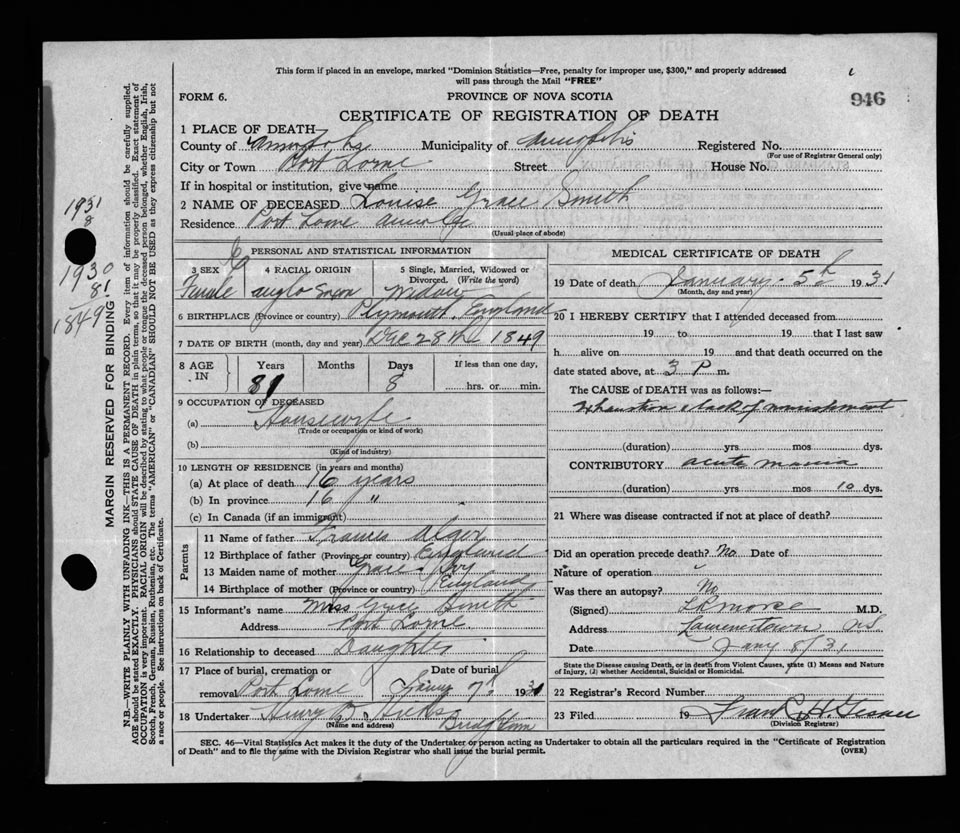 This form if placed in an envelope, marked "Dominion Statistics—Free, penalty for improper use, $300," and properly addressed
will pass through the Mail "FREE"
FORM 6.
PROVINCE OF NOVA SCOTIA
946
CERTIFICATE OF REGISTRATION OF DEATH
1 PLACE OF DEATH—
County of Annapolis Municipality of Annapolis Registered No.
(For use of Registrar General only)
City or Town Port Lorne Street House No.
If in hospital or institution, give name
2 NAME OF DECEASED Louise Grace Smith
Residence Port Lorne
(Usual place of abode)
PERSONAL AND STATISTICAL INFORMATION
3 SEX 4 RACIAL ORIGIN 5 Single, Married, Widowed or Divorced. (Write the word)
Female Anglo Saxon Widow
6 BIRTHPLACE (Province or country) Plymouth, England
7 DATE OF BIRTH (month, day and year) Dec 28th 1849
8 AGE IN Years Months Days If less than one day,
81 8 hrs. or min.
9 OCCUPATION OF DECEASED
(a) Housewife
(Trade or occupation or kind of work)
(b)
(Kind of industry)
10 LENGTH OF RESIDENCE (in years and months)
(a) At place of death 16 years
(b) In province 16 "
(c) In Canada (if an immigrant)
Parents
11 Name of father Francis Alger
12 Birthplace of father (Province or country) England
13 Maiden name of mother Grace
14 Birthplace of mother (Province or country) England
15 Informant's name Miss Grace Smith
Address Port Lorne
16 Relationship to deceased Daughter
17 Place of burial, cremation or Date of burial
removal Port Lorne Jany 7th 1931
18 Undertaker Henry B. Hicks
(Name and address) Bridgetown
MEDICAL CERTIFICATE OF DEATH
19 Date of death January 5th 1931
(Month, day and year)
20 I HEREBY CERTIFY that I attended deceased from
19 to 19 that I last saw
h alive on 19 and that death occurred on the
date stated above, at 3 P m.
The CAUSE of DEATH was as follows:—
Exhaustion & lack of nourishment
(duration) yrs mos dys.
CONTRIBUTORY acute mania
(duration) yrs mos 10 dys.
21 Where was disease contracted if not at place of death?
Did an operation precede death? No Date of
Nature of operation
Was there an autopsy? No
(Signed) L R Morse M.D.
Address Lawrencetown NS
Date Jany 8/31
State the Disease causing Death, or in death from Violent Causes, state (1) Means and Nature
of Injury, (2) whether Accidental, Suicidal or Homicidal.
22 Registrar's Record Number
23 Filed 19 Frank H. Gesner
(Division Registrar)
SEC. 46—Vital Statistics Act makes it the duty of the Undertaker or person acting as Undertaker to obtain all the particulars required in the "Certificate of Registration
of Death" and to file the same with the Division Registrar who shall issue the burial permit.
(OVER)
1931
8
1930
81
1849
MARGIN RESERVED FOR BINDING.
N.B.—WRITE PLAINLY WITH UNFADING INK—THIS IS A PERMANENT RECORD. Every item of information should be carefully supplied.
AGE should be stated EXACTLY. PHYSICIANS should STATE CAUSE OF DEATH in plain terms, so that it may be properly classified. Exact statement of
OCCUPATION is very important. RACIAL ORIGIN will be described by stating to what people or tongue the deceased person belonged, whether English, Irish,
Scotch, French, German, Russian, Ruthenian, etc. The terms "AMERICAN" or "CANADIAN" SHOULD NOT BE USED as they express citizenship but not
a race or people. See instructions on back of Certificate.